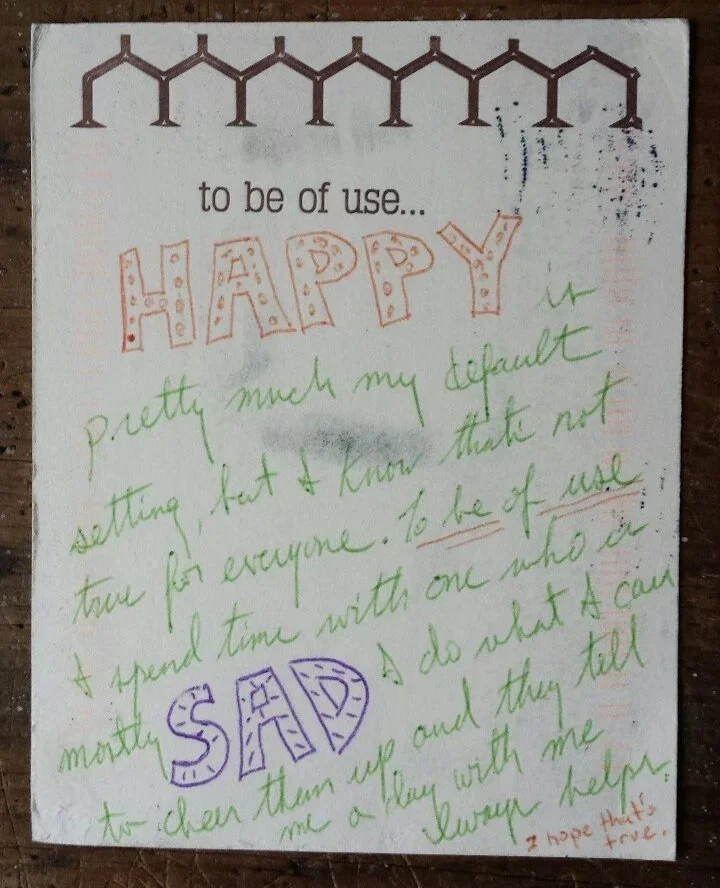 to be of use...
HAPPY is
pretty much my default
setting, but I know that's not
true for everyone. To be of use
I spend time with one who is
mostly SAD I do what I can
to cheer them up and they tell
me a day with me
always helps.
I hope that's
true.